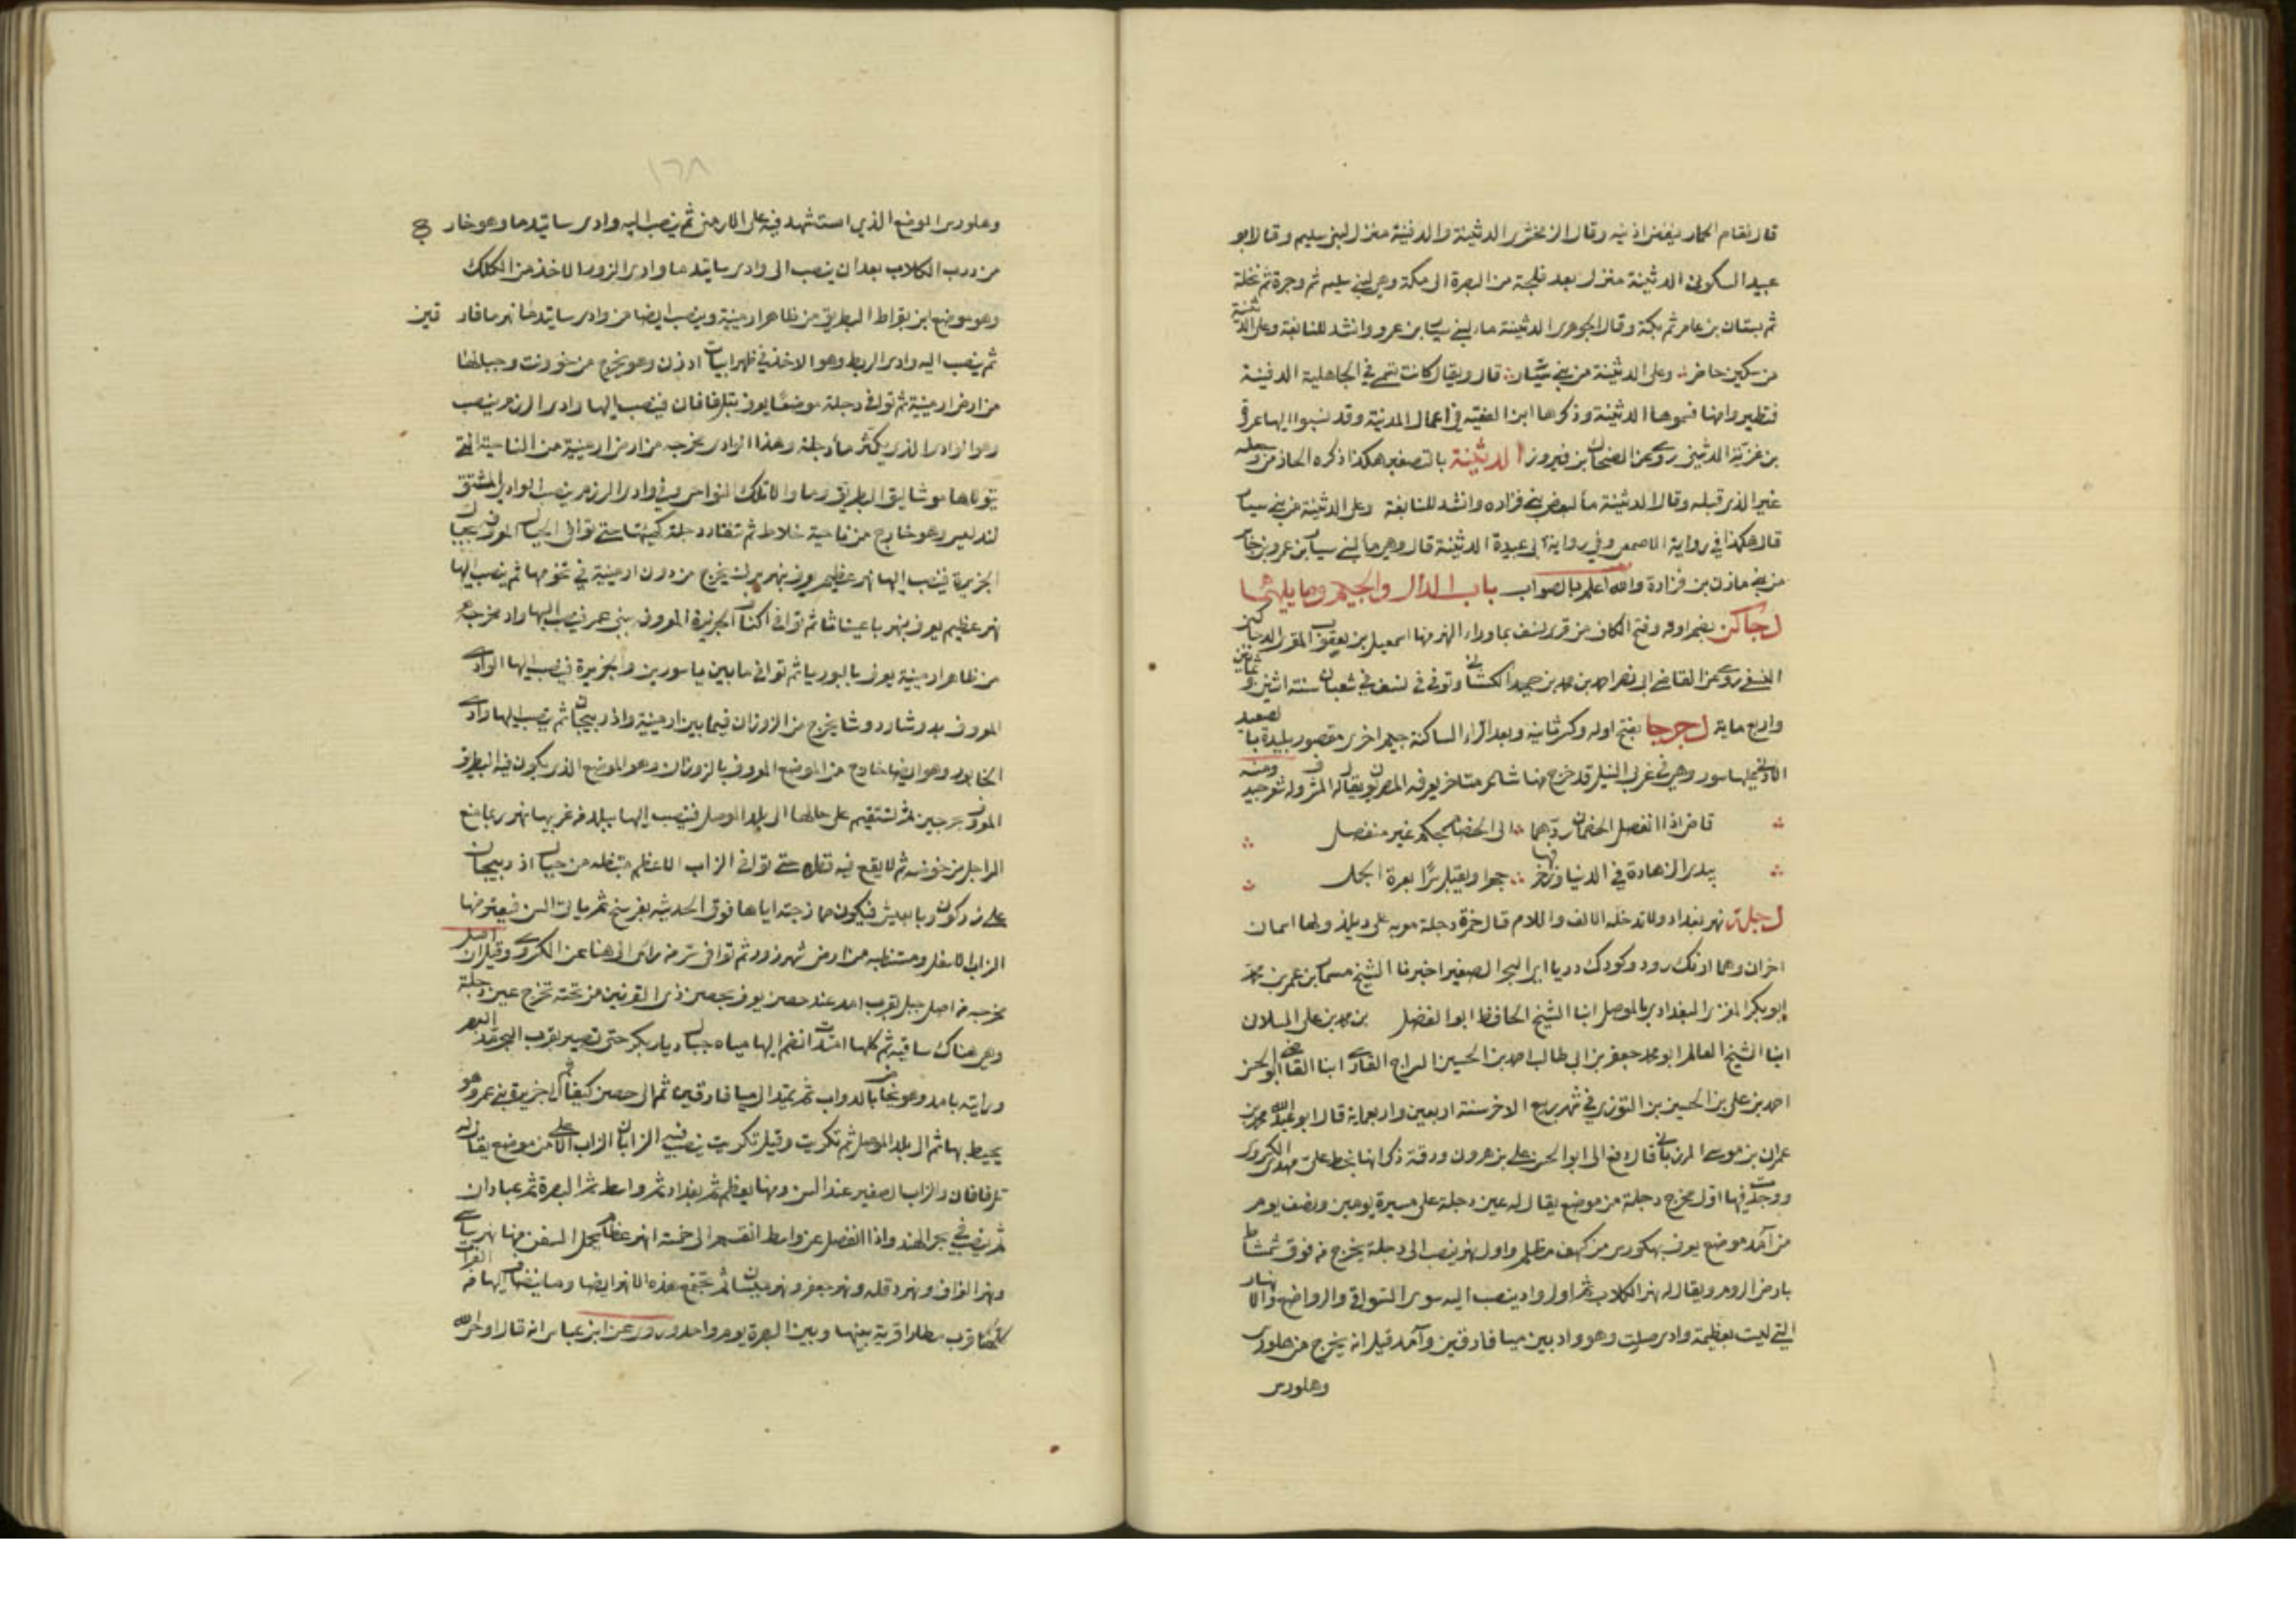 قال نقام الحمار ينفض اذنيه وقال الزمخشري الدثينة والدفينة منزل لبني سليم وقال ابو
عبيد السكوني الدثينة منزل بعد فلجة من البصرة الى مكة وهي لبني سليم ثم وجرة ثم نخلة
ثم بستان بن عامر ثم مكة وقال الجوهري الدثينة ماء لبني سيار بن عمرو وانشد للنابغة وعلى الدثينة
من سكين حاضر وعلى الدثينة من بني سيار قال ويقال كانت تسمى في الجاهلية الدفينة
فتطيروا منها فسموها الدثينة وذكرها ابن الفقيه في اعمال المدينة وقد نسبوا اليها عروة
بن غزية الدثيني روى عن الضحاك بن فيروز الدثينة بالتصغير هكذا ذكره الحازمي وجعله
غير الذي قبله وقال الدثينة ماء لبعض بني فزاره وانشد للنابغة وعلى الدثينة من بني سيار
قال هكذا في رواية الاصمعي وفي رواية ابي عبيدة الدثينة قال وهي ماء لبني سيار بن عمرو بن جابر
من بني مازن بن فزارة والله اعلم بالصواب باب الدال والجيم وما يليهما
دجاكن بضم اوله وفتح الكاف من قرى نسف بما وراء النهر منها اسمعيل بن يعقوب المقرى الدجاكني
النسفي روى عن القاضي ابي نصر احمد بن محمد بن حبيب الكشاني وتوفي في نسف في شعبان سنة اثنين وثمانين
واربع ماية دجرجا بفتح اوله وكسر ثانيه وبعد الراء الساكنة جيم اخرى مقصور بليدة بالصعيد
الادنى عليها سور وهي في غربي النيل قد خرج منها شاعر متاخر يعرفه المصريون يقال له المشرف وله شعر جيد ومنه
قاض اذا انفصل الخصمان ردهما الى الخصام بحكم غير منفصل
يبدي الزهادة في الدنيا وزخرفها جهرا ويقبل سرا بعرة الجمل
دجلة نهر بغداد ولا تدخله الالف واللام قال حمزة دجلة معربه على ديلد ولها اسمان
اخران وهما ارنك رود وكودك دريا اي البحر الصغير اخبرنا الشيخ مسمار بن عمر بن محمد
ابو بكر المقري البغدادي بالموصل انبا الشيخ الحافظ ابو الفضل بن محمد بن علي السلان
انبا الشيخ العالم ابو محمد جعفر بن ابي طالب احمد بن الحسين السراج القاري انبا القاضي ابو الحسن
احمد بن علي بن الحسين بن التوزي في شهر ربيع الاخر سنة اربعين واربعماية قال ابو عبد الله محمد بن
عمران بن موسى المرزباني قال دفع الي ابو الحسن علي بن هرون ورقة ذكر انها بخط علي بن مهدي الكسروي
ووجدت فيها اول مخرج دجلة من موضع يقال له عين دجلة على مسيرة يومين ونصف يوم
من آمد موضع يعرف بهلورس من كهف مظلم واول نهر ينصب الى دجلة يخرج من فوق شمشاط
بارض الروم ويقال له نهر الكلاب ثم اول واد ينصب اليه سوى السواقي والرواضع والانهار
التي ليست بعظيمة وادي صلب وهو واد بين ميافارقين وآمد قيل انه يخرج من هلورس
وهلورس
١٦٨
وهلورس الموضع الذي استشهد فيه علي الارمني ثم ينصب اليه وادي ساتيدما وهو خارج
من درب الكلاب بعد ان ينصب الى وادي ساتيدما وادي الزور الاخذ من الكلك
وهو موضع ابن بقراط البطريق من ظاهر ارمينية وينصب ايضا من وادي ساتيدما نهر ميافارقين
ثم ينصب اليه وادي السربط وهو الاخذ في ظهر ابيات ارزن وهو يخرج من خوويت وجبالها
من ارض ارمينية ثم توافي دجلة موضعا يعرف بتل فافان فينصب اليها وادي الرزم ينصب
وهو الوادي الذي يكثر ماء دجلة وهذا الوادي مخرجه من ارض ارمينية من الناحية التي
يتولاها موشاليق البطريق وما والا تلك النواحي وفي وادي الرزم ينصب الوادي المشتق
لبدليس وهو خارج من ناحية خلاط ثم تنقاد دجلة كهيئتها حتى توافي الجبال المعروف بجبال
الجزيرة فينصب اليها نهر عظيم يعرف بنهر يرنى يخرج من دون ارمينية في تخومها ثم ينصب اليها
نهر عظيم يعرف بنهر باعيناثا ثم توافي اكناف الجزيرة المعروف ببني عمر فينصب اليها واد مخرجه
من ظاهر ارمينية يعرف بالبوريا ثم توافي ما بين باسورين والجزيرة فينصب اليها الوادي
المعروف بدوشا ودوشا يخرج من الزوزان فيما بين ارمينية واذربيجان ثم ينصب اليها وادي
الخابور وهو ايضا خارج من الموضع المعروف بالزوزان وهو الموضع الذي يكون فيه البطريق
المعروف بجرجيز ثم تستقيم على حالها الى بلد الموصل فينصب اليها ببلد من غربيها نهر ربما منع
الراجل من خوضه ثم لا يقع فيه قطرة حتى توافي الزاب الاعظم مستنبطه من جبال اذربيجان
على زركون وبابغيش فيكون ممازجته اياها فوق الحديثه بفرسخ ثم ياتي السن فيعترضها
الزاب الاسفل ومستنبطه من ارض شهرزور ثم توافي سر من راى الى هنا عن الكسروي وقيل ان اصل
مخرجه من اصل جبل بقرب امد عند حصن يعرف بحصن ذي القرنين من تحته تخرج عين دجلة
وهي هناك ساقيه ثم كلها امتدت انضم اليها مياه جبال ديار بكر حتى تصير بقرب البحر مد البصر
ورايته بامد وهو يخاض بالدواب ثم يمتد الى ميافارقين ثم الى حصن كيفا ثم الى جزيرة بني عمر وهو
يحيط بها ثم الى بلد الموصل ثم تكريت وقيل تكريت ينصب فيه الزابان الزاب الاعلى من موضع يقال له
تل فافان والزاب الصغير عند السن ومنها يعظم ثم بغداد ثم واسط ثم البصرة ثم عبادان
ثم ينصب في بحر الهند واذا انفصل عن واسط انقسم الى خمسة انهر عظام تحمل السفن منها نهر ساسي
ونهر الغراف ونهر دقله ونهر جعفر ونهر ميسان ثم تجتمع هذه الانهر ايضا وما ينضاف اليها من الفرات
كلها قرب مطارا قرية بينها وبين البصرة يوم واحد وروى عن ابن عباس انه قال اوحى الله